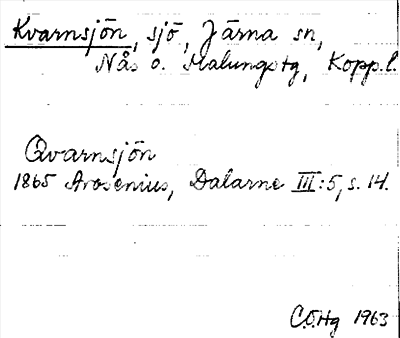 Kvarnsjön, sjö, Järna sn,
Nås o. Malungs tg, Kopp.l.
Qvarnsjön
1865 Arosenius, Dalarne III:5, s. 14.
C.O.Hg 1963